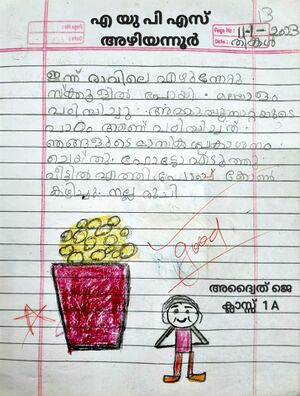 എ യു പി എസ്
അഴിയന്നൂർ
Page No : 3
Date : 11-1-2023
തിങ്കൾ
ഇന്ന് രാവിലെ എഴുന്നേറ്റു
സ്ക്കൂളിൽ പോയി. മലയാളം
പഠിപ്പിച്ചു. അമ്മായുമ്മയുടെ
പാഠം ആണ് പഠിപ്പിച്ചത്
ഞങ്ങളുടെ മാസിക പ്രകാശനം
ചെയ്തു. ഫോട്ടോ എടുത്തു
വീട്ടിൽ എത്തി പോപ്പ് കോൺ
കഴിച്ചു. നല്ല രുചി
good
അദ്വൈത് ജെ
ക്ലാസ്സ് 1 A